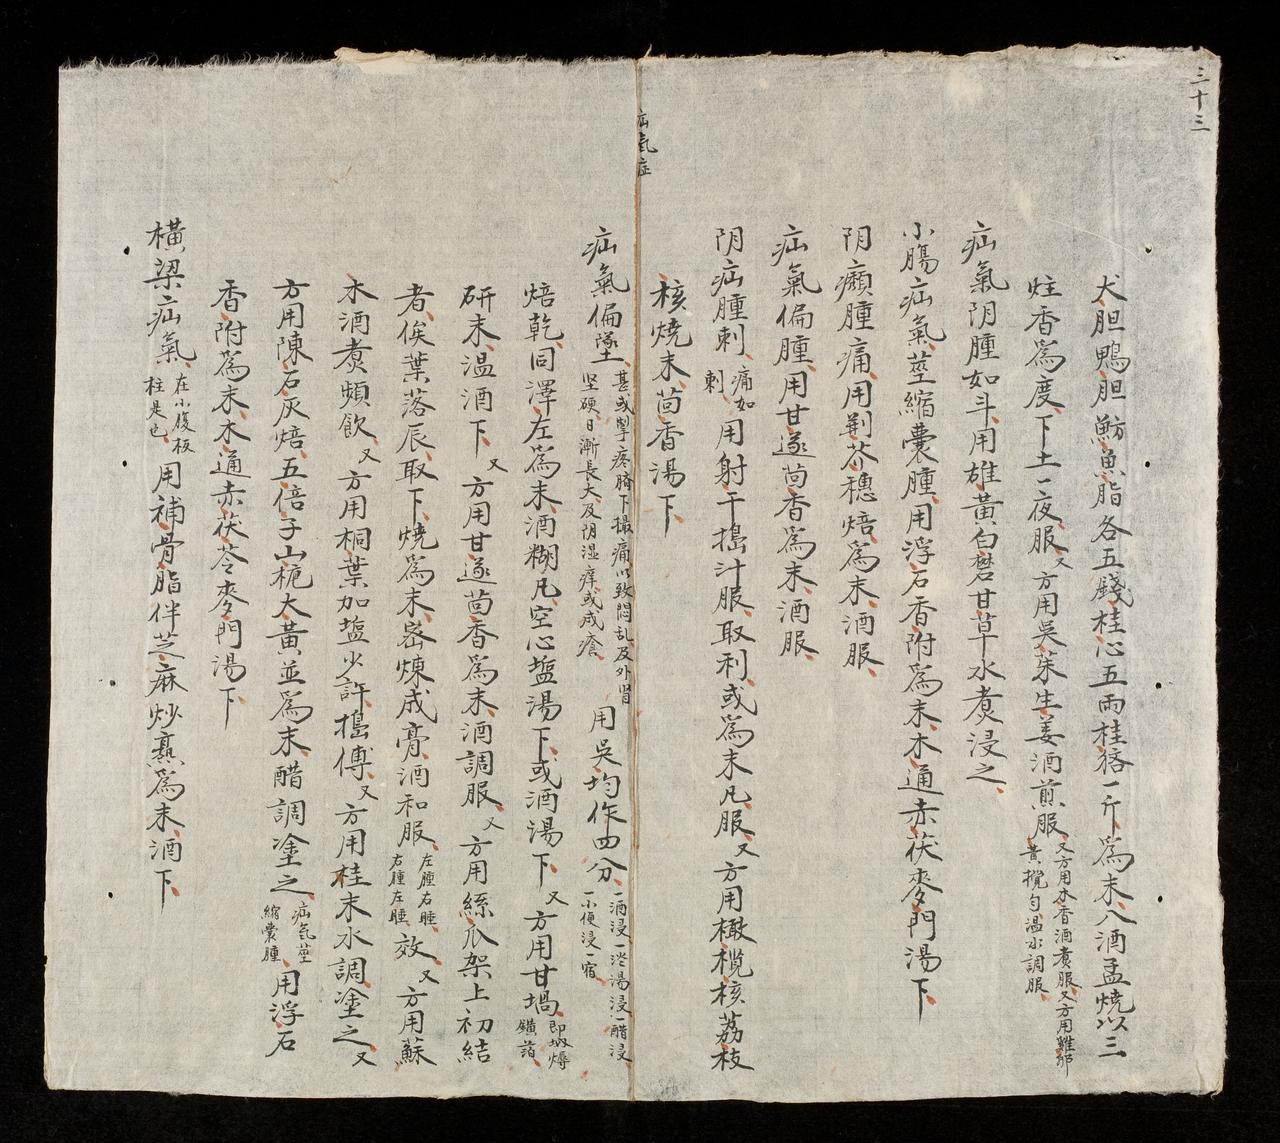 三十三
犬胆鴨胆魴魚脂各五錢桂心五両桂狢一斤爲末入酒孟燒以三
炷香爲度下土一夜服又方用吳茱生姜酒煎服又方用木香酒煮服又方用雞卵黄攪匀温水調服
疝氣阴腫如斗用雄黄白礬甘草水煮浸之
小膓疝氣莖縮囊腫用浮石香附爲末木通赤茯麥門湯下
阴㿗腫痛用荆芥穗焙爲末酒服
疝氣偏腫用甘遂茴香爲末酒服
阴疝腫刺痛如刺用射干搗汁服取利或爲末凡服又方用橄欖核荔枝
核燒末茴香湯下
疝氣症
疝氣偏墜甚或掣疼臍下撮痛以致悶乱及外腎坚硬日漸長大及阴湿痒或成瘡用吳均作四分一酒浸一湯浸一醋浸一小便浸一宿
焙乾同澤左爲末酒糊凡空心塩湯下或酒湯下又方用甘堝
研末温酒下又方用甘遂茴香爲末酒調服又方用絲瓜架上初結
者俟葉落辰取下燒爲末宻煉成膏酒和服左腫右睡右腫左睡效又方用蘇
木酒煮頻飲又方用桐葉加塩少許搗傅又方用桂末水調塗之又
方用陳石灰焙五倍子山梔大黄並爲末醋調塗之疝氣莖縮囊腫用浮石
香附爲末木通赤茯苓麥門湯下
横梁疝氣在小腹板柱是也用補骨脂伴芝麻炒熏爲末酒下